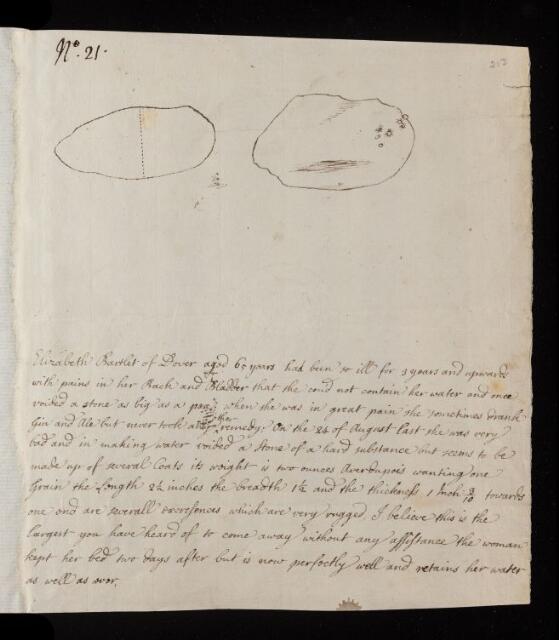 No. 21.
213
Elizabeth Bartlet of Dover aged 65 years had been so ill for 3 years and upwards
with pains in her Back and Bladder that she coud not contain her water and once
voided a stone as big as a pea, when she was in great pain she sometimes drank
Gin and Ale but never took any other remedy; On the 24 of August last she was very
bad and in making water voided a stone of a hard substance but seems to be
made up of several Coats its weight is two ounces Averdupois wanting one
Grain the Length 2¼ inches the breadth 1½ and the thickness 1 Inch towards
one end are severall excresences which are very rugged. I believe this is the
largest you have heard of to come away without any assistance the woman
kept her bed two days after but is now perfectly well and retains her water
as well as ever.